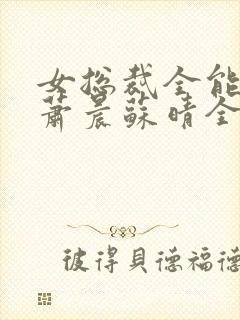 女总裁全能
萧晨苏晴全
彼得貝德福德